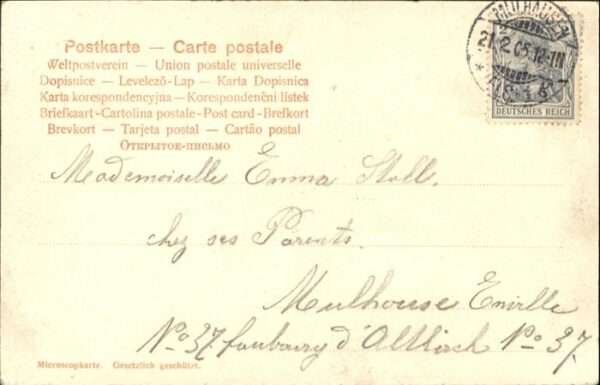 Postkarte — Carte postale
Weltpostverein — Union postale universelle
Dopisnice — Levelező-Lap — Karta Dopisnica
Karta korespondencyjna — Korespondenční lístek
Briefkaart - Cartolina postale - Post card - Brefkort
Brevkort — Tarjeta postal — Cartão postal
Открытое-письмо
MÜLHAUSEN
21.2.05.12-1N
(ELS.)
DEUTSCHES REICH
Mademoiselle Emma Stoll.
chez ses Parents.
Mulhouse
No 37. faubourg d'Altkirch No 37.
Microscopkarte. Gesetzlich geschützt.